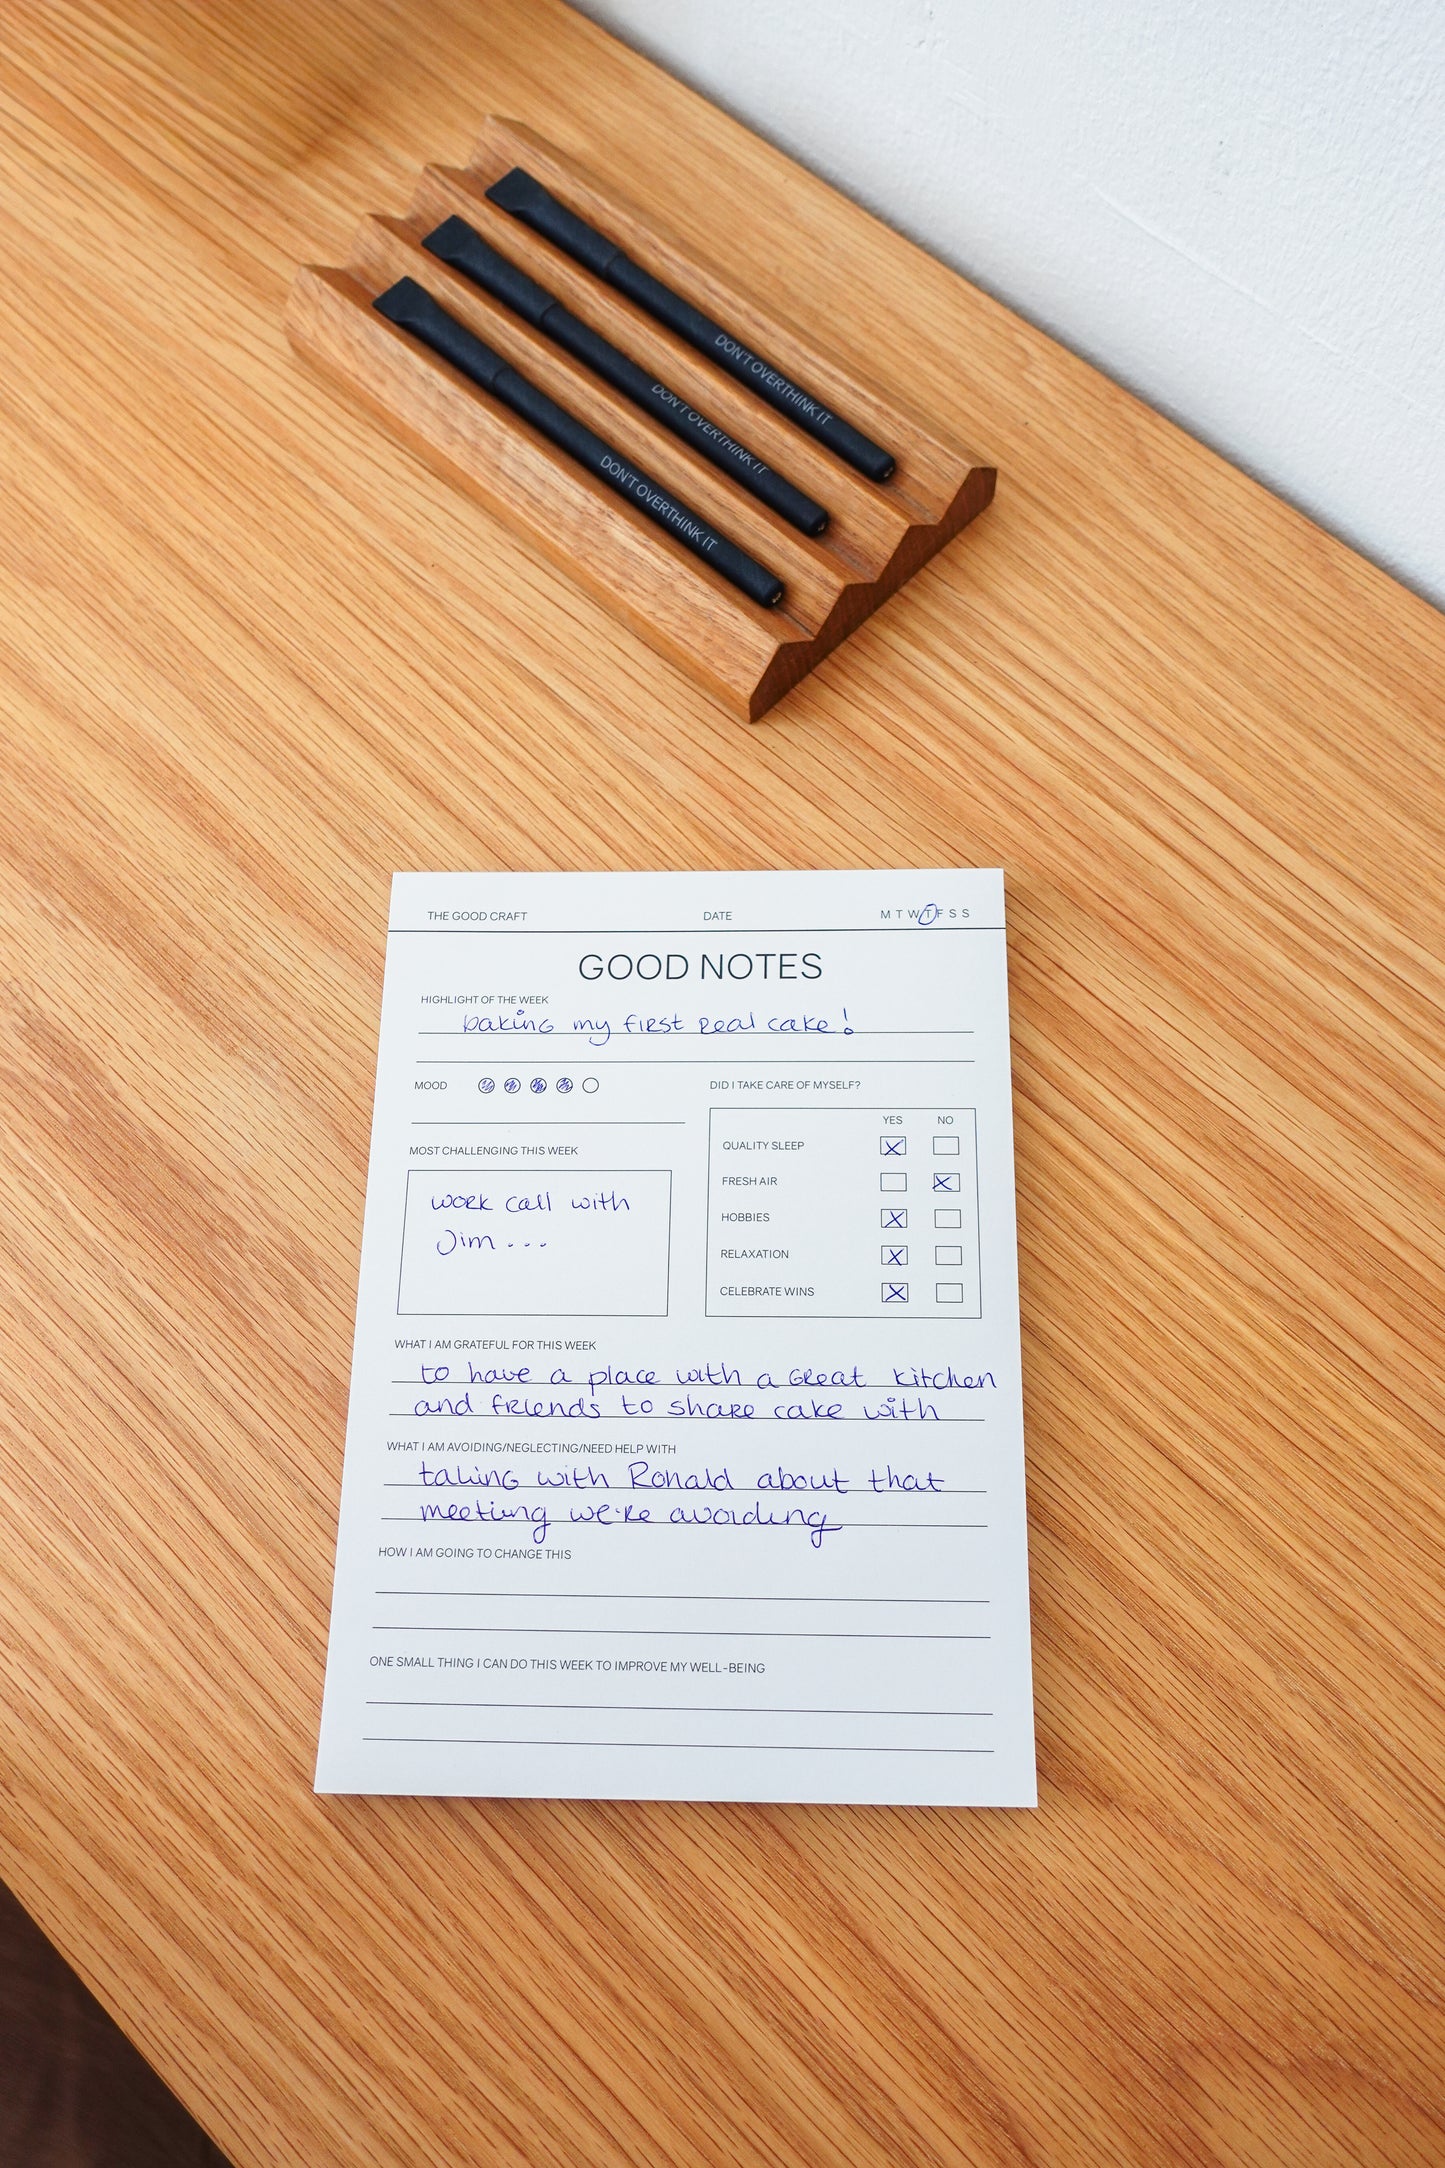 DON'T OVERTHINK IT
DON'T OVERTHINK IT
DON'T OVERTHINK IT
THE GOOD CRAFT DATE M T W T F S S
GOOD NOTES
HIGHLIGHT OF THE WEEK
baking my first real cake!
MOOD
DID I TAKE CARE OF MYSELF?
YES NO
QUALITY SLEEP X
FRESH AIR X
HOBBIES X
RELAXATION X
CELEBRATE WINS X
MOST CHALLENGING THIS WEEK
work call with
Jim...
WHAT I AM GRATEFUL FOR THIS WEEK
to have a place with a great kitchen
and friends to share cake with
WHAT I AM AVOIDING/NEGLECTING/NEED HELP WITH
talking with Ronald about that
meeting we're avoiding
HOW I AM GOING TO CHANGE THIS
ONE SMALL THING I CAN DO THIS WEEK TO IMPROVE MY WELL-BEING